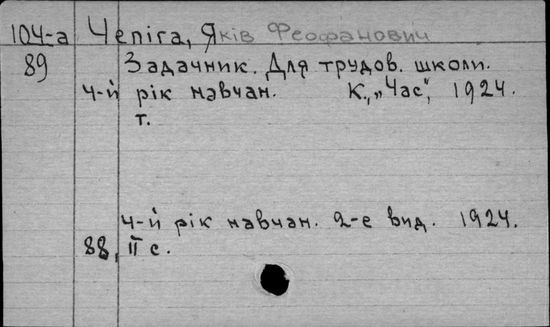 104-а Чепіга, Яків Феофанович
89 Задачник. Для трудов. школи.
4-й рік навчан. К., „Час", 1924.
т.
4-й рік навчан. 2-е вид. 1924.
88, II с.